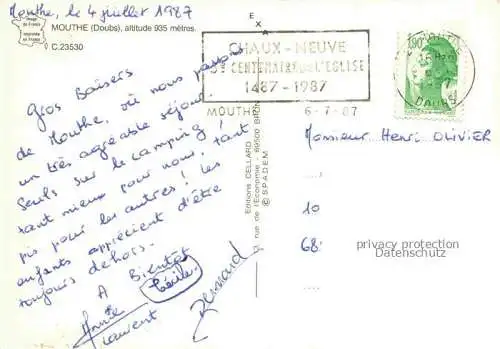 Mouthe, le 4 juillet 1987
Image de France
Imprimée en France
MOUTHE (Doubs), altitude 935 mètres.
C.23530
Gros Baisers
de Mouthe, où nous passons
un très agréable séjour.
Seuls sur le camping!
tant mieux pour nous, tant
pis pour les autres! les
enfants apprécient d'être
toujours dehors.
A Bientôt
Cécile.
Annie
Laurent
Bernard
Editions CELLARD
rue de l'Economie - 69500 BRON
© S.P.A.D.E.M.
EX
CHAUX-NEUVE
5e CENTENAIRE DE L'EGLISE
1487-1987
MOUTHE 6-7-87
1,90
DOUBS
Monsieur Henri OLIVIER
10
68
privacy protection
Datenschutz